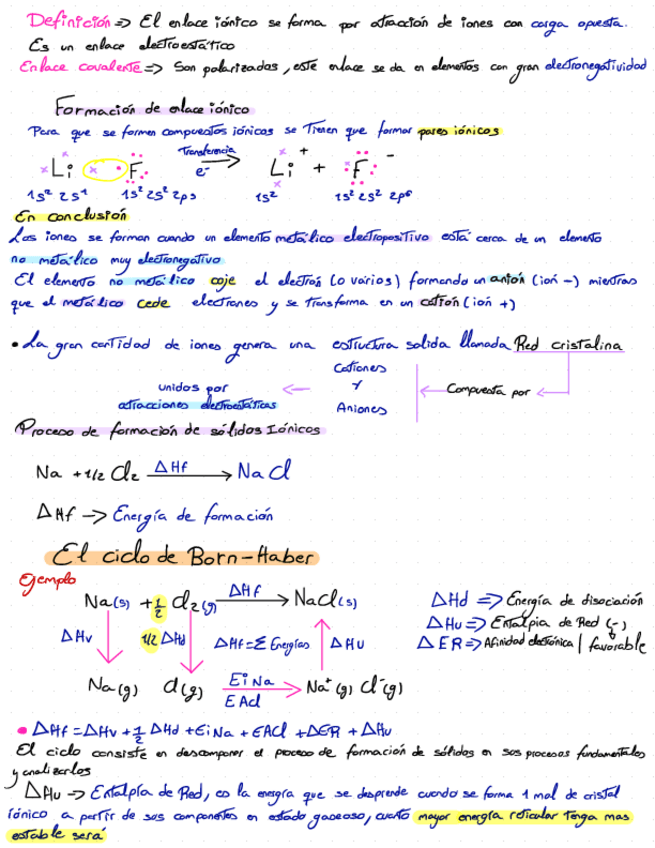 Definición => El enlace iónico se forma por atracción de iones con carga opuesta.
Es un enlace electroestático
Enlace covalente => Son polarizadas, este enlace se da en elementos con gran electronegatividad
Formación de enlace iónico
Para que se formen compuestos iónicos se tienen que formar pares iónicos
Li F Transferencia e⁻ → Li⁺ + F⁻
1s² 2s¹ 1s² 2s² 2p⁵ 1s² 1s² 2s² 2p⁶
En conclusión
Los iones se forman cuando un elemento metálico electropositivo está cerca de un elemento
no metálico muy electronegativo
El elemento no metálico coje el electrón (o varios) formando un anión (ión -) mientras
que el metálico cede electrones y se transforma en un catión (ión +)
• La gran cantidad de iones genera una estructura solida llamada Red cristalina
Cationes
unidos por ← Y ← Compuesta por ←
atracciones electroestáticas Aniones
Proceso de formación de sólidos Iónicos
Na + 1/2 Cl₂ ΔHf → NaCl
ΔHf -> Energía de formación
El ciclo de Born-Haber
Ejemplo
Na(s) + 1/2 Cl₂(g) ΔHf → NaCl(s)
ΔHv 1/2 ΔHd ΔHf = Σ Energías ΔHu
Na(g) Cl(g) EiNa EACl → Na⁺(g) Cl⁻(g)
ΔHd => Energía de disociación
ΔHu => Entalpia de Red (-)
ΔER => Afinidad electrónica | favorable
• ΔHf = ΔHv + 1/2 ΔHd + EiNa + EACl + ΔER + ΔHu
El ciclo consiste en descomponer el proceso de formación de sólidos en sus procesos fundamentales
y analizarlos
ΔHu -> Entalpía de Red, es la energía que se desprende cuando se forma 1 mol de cristal
iónico a partir de sus componentes en estado gaseoso, cuanto mayor energía reticular tenga mas
estable será